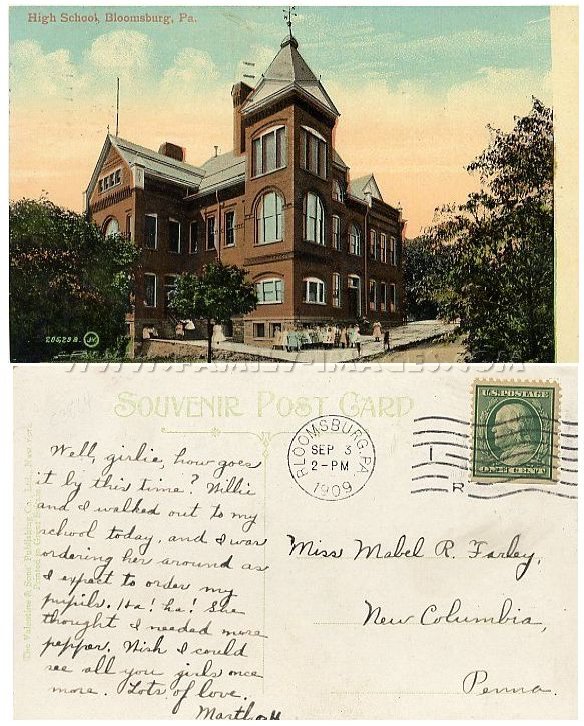 High School, Bloomsburg, Pa.
20529 B. JV
WWW.FAMILY-IMAGES.COM
SOUVENIR POST CARD
BLOOMSBURG, PA.
SEP 3
2-PM
1909
I
R
U.S. POSTAGE
ONE CENT
Well, girlie, how goes
it by this time? Willie
and I walked out to my
school today, and I was
ordering her around as
I expect to order my
pupils. Ha! ha! She
thought I needed more
pepper. Wish I could
see all you girls once
more. Lots of love.
Martha H
Miss Mabel R. Farley,
New Columbia,
Penna.
The Valentine & Sons Publishing Co., Ltd., New York.